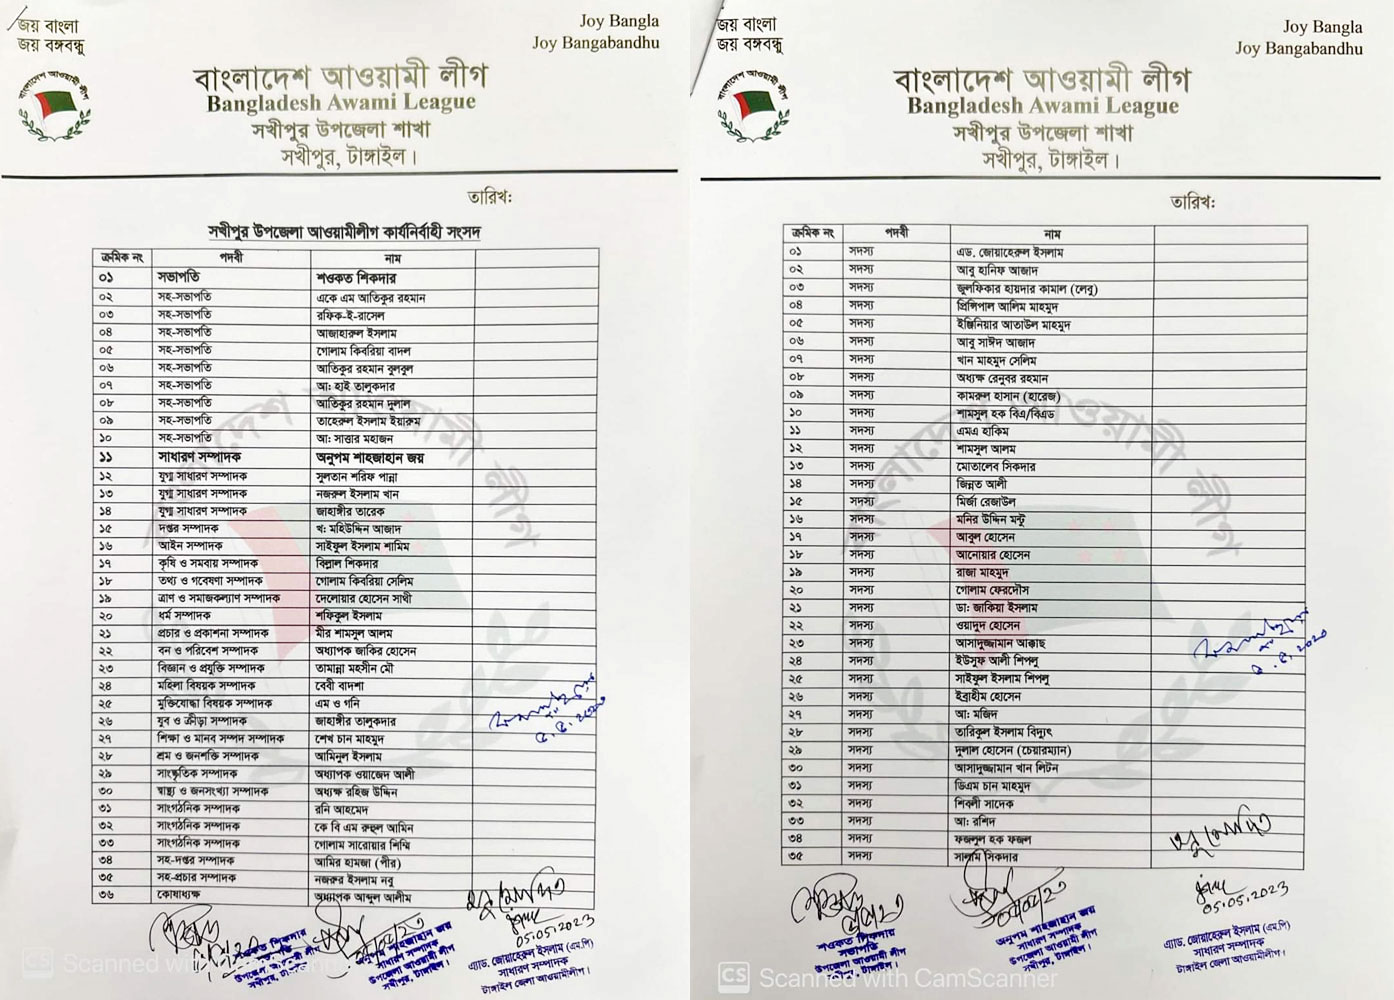 জয় বাংলা
জয় বঙ্গবন্ধু
Joy Bangla
Joy Bangabandhu
বাংলাদেশ আওয়ামী লীগ
বাংলাদেশ আওয়ামী লীগ
Bangladesh Awami League
সখীপুর উপজেলা শাখা
সখীপুর, টাঙ্গাইল।
তারিখ:
সখীপুর উপজেলা আওয়ামীলীগ কার্যনির্বাহী সংসদ
ক্রমিক নং পদবী নাম
০১ সভাপতি শওকত শিকদার
০২ সহ-সভাপতি একে এম আতিকুর রহমান
০৩ সহ-সভাপতি রফিক-ই-রাসেল
০৪ সহ-সভাপতি আজাহারুল ইসলাম
০৫ সহ-সভাপতি গোলাম কিবরিয়া বাদল
০৬ সহ-সভাপতি আতিকুর রহমান বুলবুল
০৭ সহ-সভাপতি আ: হাই তালুকদার
০৮ সহ-সভাপতি আতিকুর রহমান দুলাল
০৯ সহ-সভাপতি তাহেরুল ইসলাম ইয়ারুম
১০ সহ-সভাপতি আ: সাত্তার মহাজন
১১ সাধারণ সম্পাদক অনুপম শাহজাহান জয়
১২ যুগ্ম সাধারণ সম্পাদক সুলতান শরিফ পান্না
১৩ যুগ্ম সাধারণ সম্পাদক নজরুল ইসলাম খান
১৪ যুগ্ম সাধারণ সম্পাদক জাহাঙ্গীর তারেক
১৫ দপ্তর সম্পাদক খ: মহিউদ্দিন আজাদ
১৬ আইন সম্পাদক সাইফুল ইসলাম শামিম
১৭ কৃষি ও সমবায় সম্পাদক বিল্লাল শিকদার
১৮ তথ্য ও গবেষণা সম্পাদক গোলাম কিবরিয়া সেলিম
১৯ ত্রাণ ও সমাজকল্যাণ সম্পাদক দেলোয়ার হোসেন সাথী
২০ ধর্ম সম্পাদক শফিকুল ইসলাম
২১ প্রচার ও প্রকাশনা সম্পাদক মীর শামসুল আলম
২২ বন ও পরিবেশ সম্পাদক অধ্যাপক জাকির হোসেন
২৩ বিজ্ঞান ও প্রযুক্তি সম্পাদক তামান্না মহসীন মৌ
২৪ মহিলা বিষয়ক সম্পাদক বেবী বাদশা
২৫ মুক্তিযোদ্ধা বিষয়ক সম্পাদক এম ও গনি
২৬ যুব ও ক্রীড়া সম্পাদক জাহাঙ্গীর তালুকদার
২৭ শিক্ষা ও মানব সম্পদ সম্পাদক শেখ চান মাহমুদ
২৮ শ্রম ও জনশক্তি সম্পাদক আমিনুল ইসলাম
২৯ সাংষ্কৃতিক সম্পাদক অধ্যাপক ওয়াজেদ আলী
৩০ স্বাস্থ্য ও জনসংখ্যা সম্পাদক অধ্যক্ষ রহিজ উদ্দিন
৩১ সাংগঠনিক সম্পাদক রনি আহমেদ
৩২ সাংগঠনিক সম্পাদক কে বি এম রুহুল আমিন
৩৩ সাংগঠনিক সম্পাদক গোলাম সারোয়ার শিম্মি
৩৪ সহ-দপ্তর সম্পাদক আমির হামজা (পীর)
৩৫ সহ-প্রচার সম্পাদক নজরুর ইসলাম নবু
৩৬ কোষাধ্যক্ষ অধ্যাপক আব্দুল আলীম
অনুমোদিত
05.05.2023
শওকত শিকদার
উপজেলা আওয়ামী লীগ
সখীপুর, টাঙ্গাইল।
অনুপম শাহজাহান জয়
সাধারণ সম্পাদক
উপজেলা আওয়ামী লীগ
সখীপুর, টাঙ্গাইল।
এ্যাড. জোয়াহেরুল ইসলাম (এম.পি)
সাধারণ সম্পাদক
টাঙ্গাইল জেলা আওয়ামীলীগ।
CS Scanned with CamScanner
জয় বাংলা
জয় বঙ্গবন্ধু
Joy Bangla
Joy Bangabandhu
বাংলাদেশ আওয়ামী লীগ
বাংলাদেশ আওয়ামী লীগ
Bangladesh Awami League
সখীপুর উপজেলা শাখা
সখীপুর, টাঙ্গাইল।
তারিখ:
ক্রমিক নং পদবী নাম
০১ সদস্য এড. জোয়াহেরুল ইসলাম
০২ সদস্য আবু হানিফ আজাদ
০৩ সদস্য জুলফিকার হায়দার কামাল (লেবু)
০৪ সদস্য প্রিন্সিপাল আলিম মাহমুদ
০৫ সদস্য ইঞ্জিনিয়ার আতাউল মাহমুদ
০৬ সদস্য আবু সাঈদ আজাদ
০৭ সদস্য খান মাহমুদ সেলিম
০৮ সদস্য অধ্যক্ষ রেনুবর রহমান
০৯ সদস্য কামরুল হাসান (হারেজ)
১০ সদস্য শামসুল হক বিএ/বিএড
১১ সদস্য এমএ হাকিম
১২ সদস্য শামসুল আলম
১৩ সদস্য মোতালেব সিকদার
১৪ সদস্য জিন্নত আলী
১৫ সদস্য মির্জা রেজাউল
১৬ সদস্য মনির উদ্দিন মন্টু
১৭ সদস্য আবুল হোসেন
১৮ সদস্য আনোয়ার হোসেন
১৯ সদস্য রাজা মাহমুদ
২০ সদস্য গোলাম ফেরদৌস
২১ সদস্য ডা: জাকিয়া ইসলাম
২২ সদস্য ওয়াদুদ হোসেন
২৩ সদস্য আসাদুজ্জামান আক্কাছ
২৪ সদস্য ইউসুফ আলী শিপলু
২৫ সদস্য সাইফুল ইসলাম শিপলু
২৬ সদস্য ইব্রাহীম হোসেন
২৭ সদস্য আ: মজিদ
২৮ সদস্য তারিকুল ইসলাম বিদ্যুৎ
২৯ সদস্য দুলাল হোসেন (চেয়ারম্যান)
৩০ সদস্য আসাদুজ্জামান খান লিটন
৩১ সদস্য ডিএম চান মাহমুদ
৩২ সদস্য শিবলী সাদেক
৩৩ সদস্য আ: রশিদ
৩৪ সদস্য ফজলুল হক ফজল
৩৫ সদস্য সালাম সিকদার
অনুমোদিত
05.05.2023
শওকত শিকদার
সভাপতি
উপজেলা আওয়ামী লীগ
সখীপুর, টাঙ্গাইল।
অনুপম শাহজাহান জয়
সাধারণ সম্পাদক
উপজেলা আওয়ামী লীগ
সখীপুর, টাঙ্গাইল।
এ্যাড. জোয়াহেরুল ইসলাম (এম.পি)
সাধারণ সম্পাদক
টাঙ্গাইল জেলা আওয়ামীলীগ।
CS Scanned with CamScanner